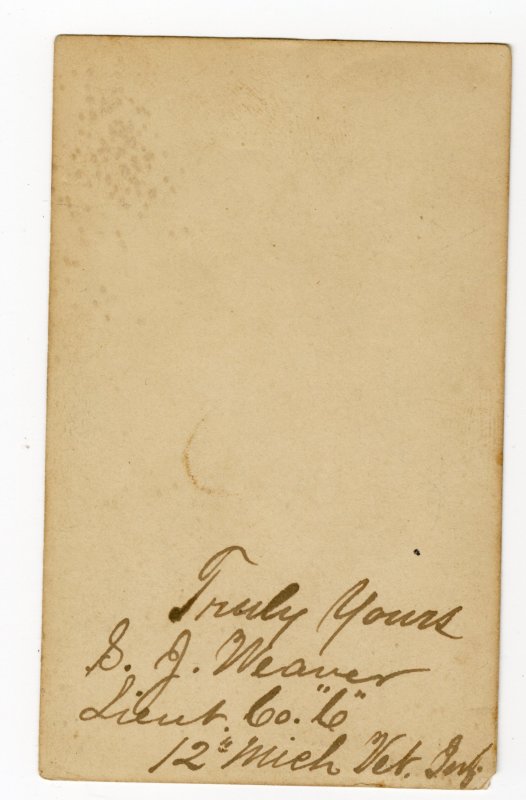 Truly Yours
S. J. Weaver
Lieut. Co. "C"
12th Mich Vet. Inf.